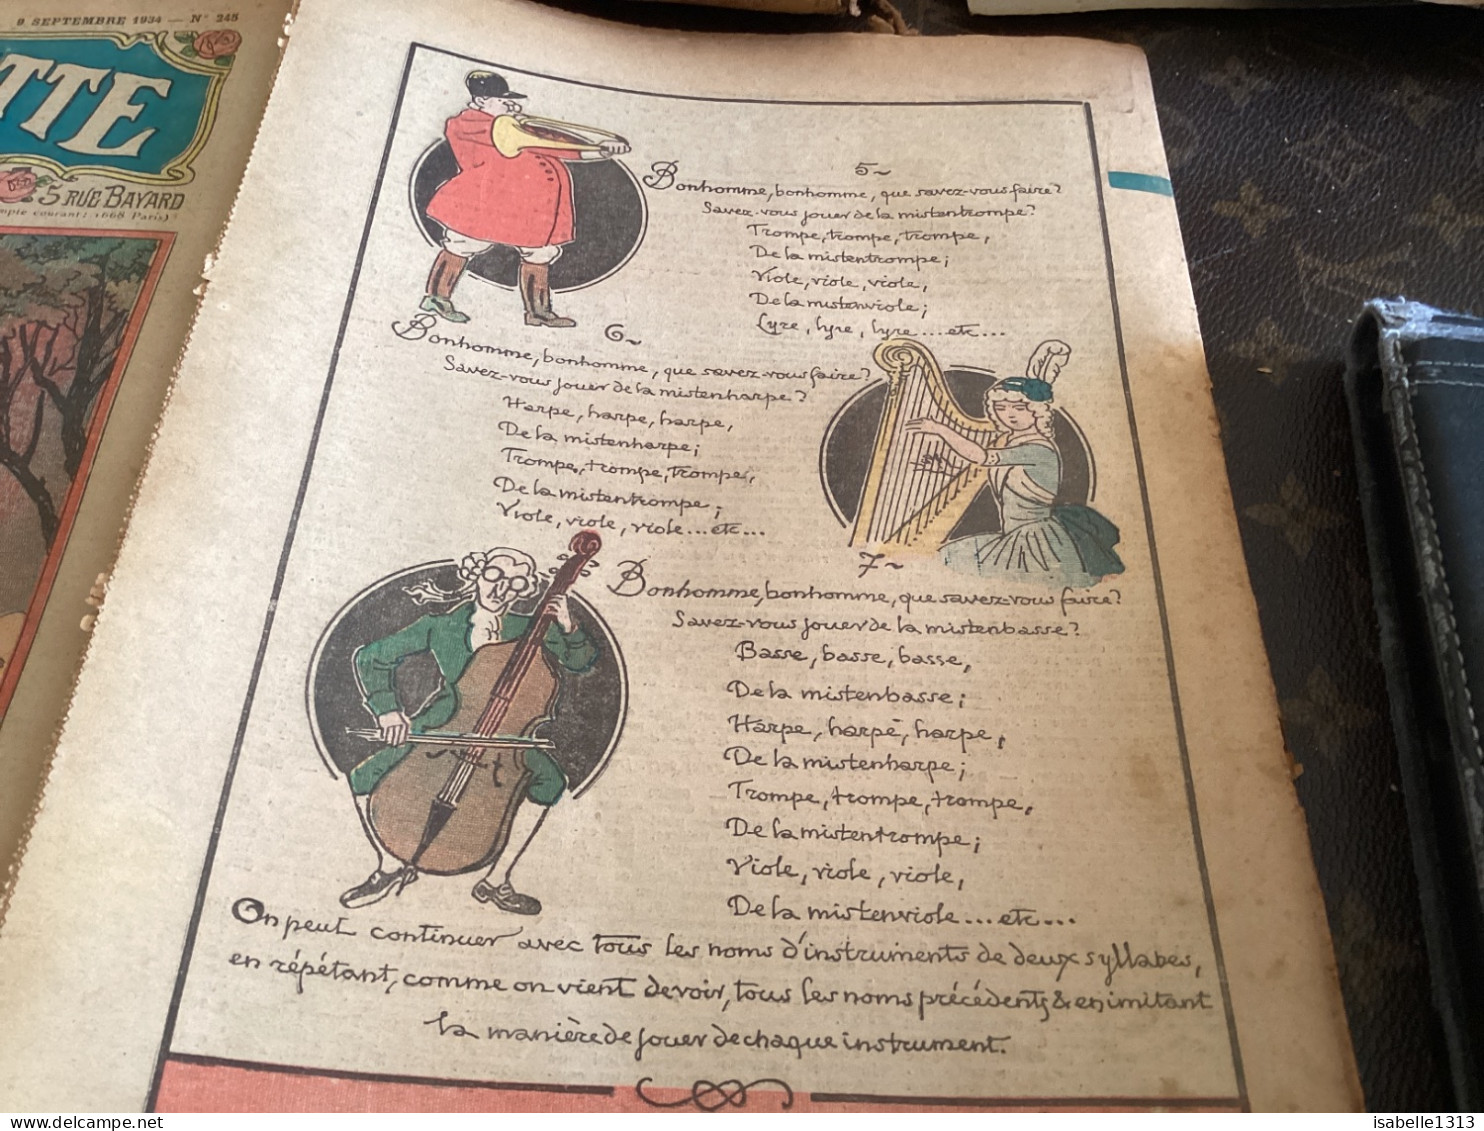 9 SEPTEMBRE 1934 — N° 245
TTE
5 RUE BAYARD
mpte courant : 1668 Paris)
5~
Bonhomme, bonhomme, que savez-vous faire?
Savez-vous jouer de la mistentrompe?
Trompe, trompe, trompe,
De la mistentrompe;
Viole, viole, viole,
De la mistenviole;
Lyre, lyre, lyre....etc...
6~
Bonhomme, bonhomme, que savez-vous faire?
Savez-vous jouer de la mistenharpe?
Harpe, harpe, harpe,
De la mistenharpe;
Trompe, trompe, trompe,
De la mistentrompe;
Viole, viole, viole...etc...
7~
Bonhomme, bonhomme, que savez-vous faire?
Savez-vous jouer de la mistenbasse?
Basse, basse, basse,
De la mistenbasse;
Harpe, harpe, harpe,
De la mistenharpe;
Trompe, trompe, trompe,
De la mistentrompe;
Viole, viole, viole,
De la mistenviole...etc...
On peut continuer avec tous les noms d'instruments de deux syllabes,
en répétant, comme on vient de voir, tous les noms précédents & en imitant
la manière de jouer de chaque instrument.
isabelle1313